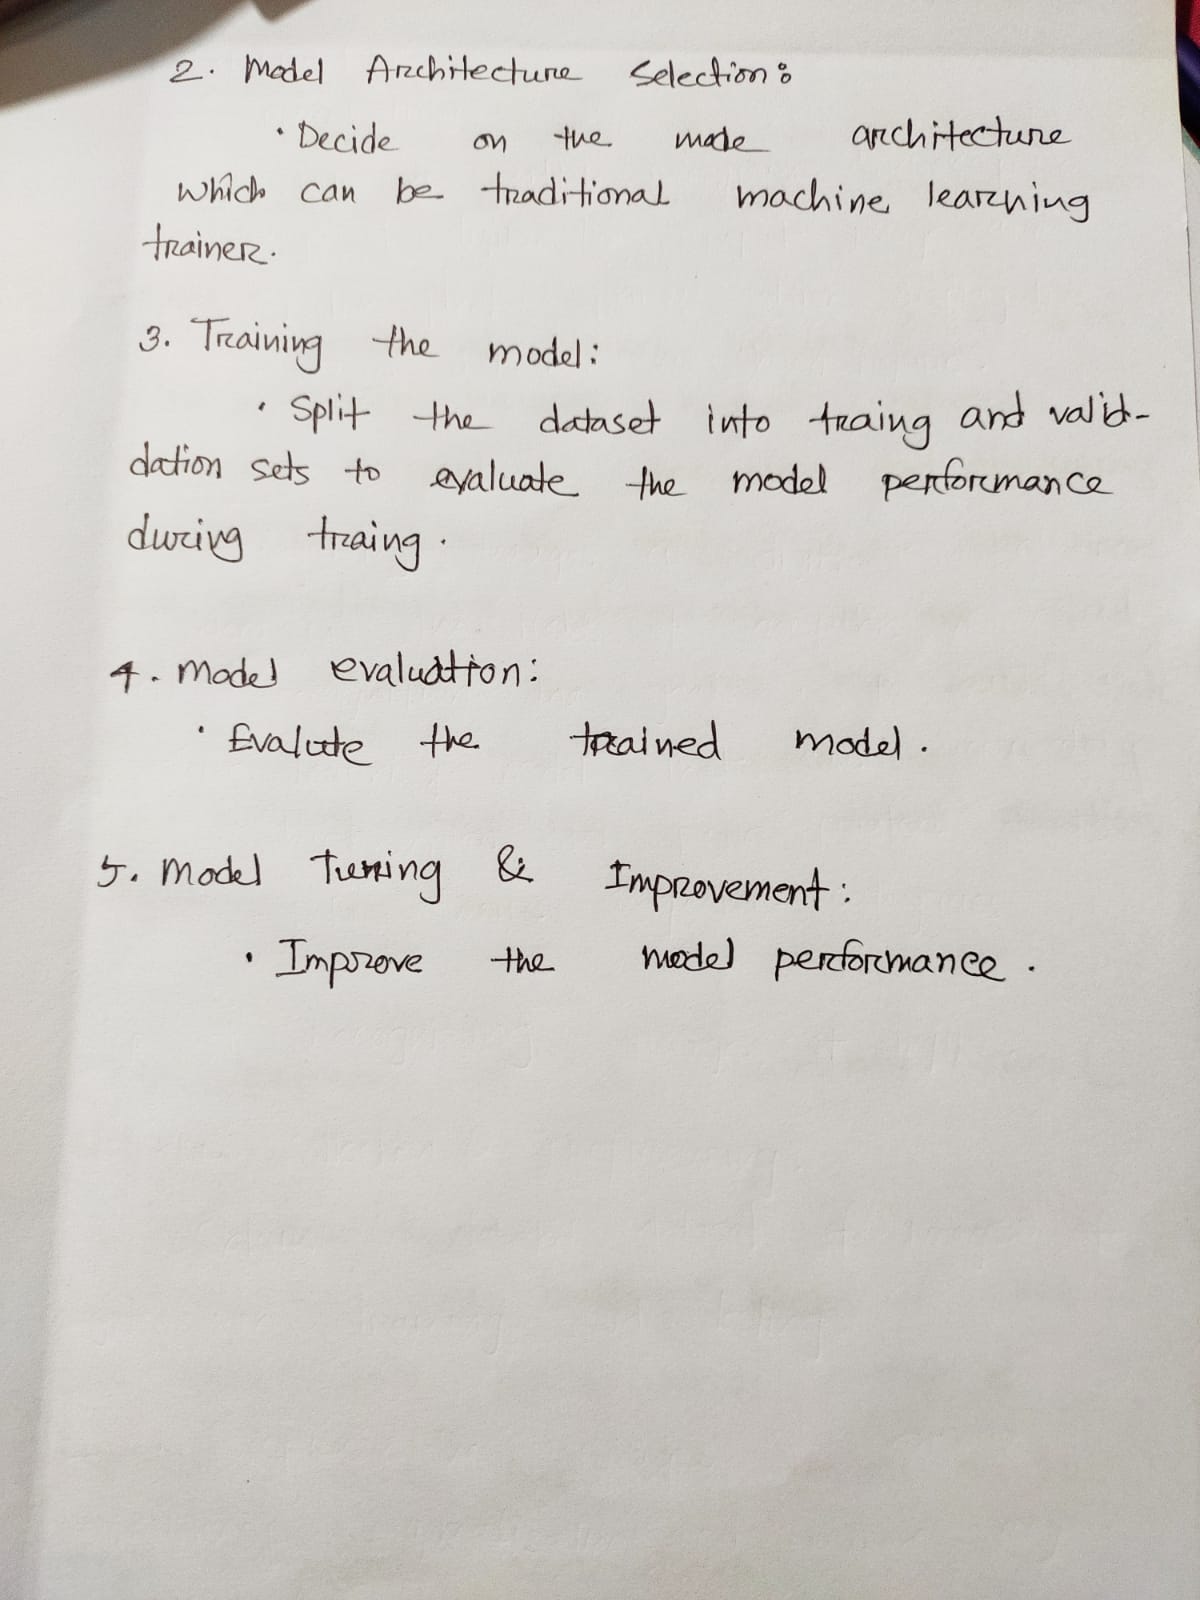 2. Model Architecture Selection:
• Decide on the mode architecture
which can be traditional machine learning
trainer.
3. Training the model:
• Split the dataset into traing and valid-
dation sets to evaluate the model performance
during traing.
4. Model evaluation:
• Evalute the trained model.
5. Model Tunning & Improvement:
• Improve the model performance.